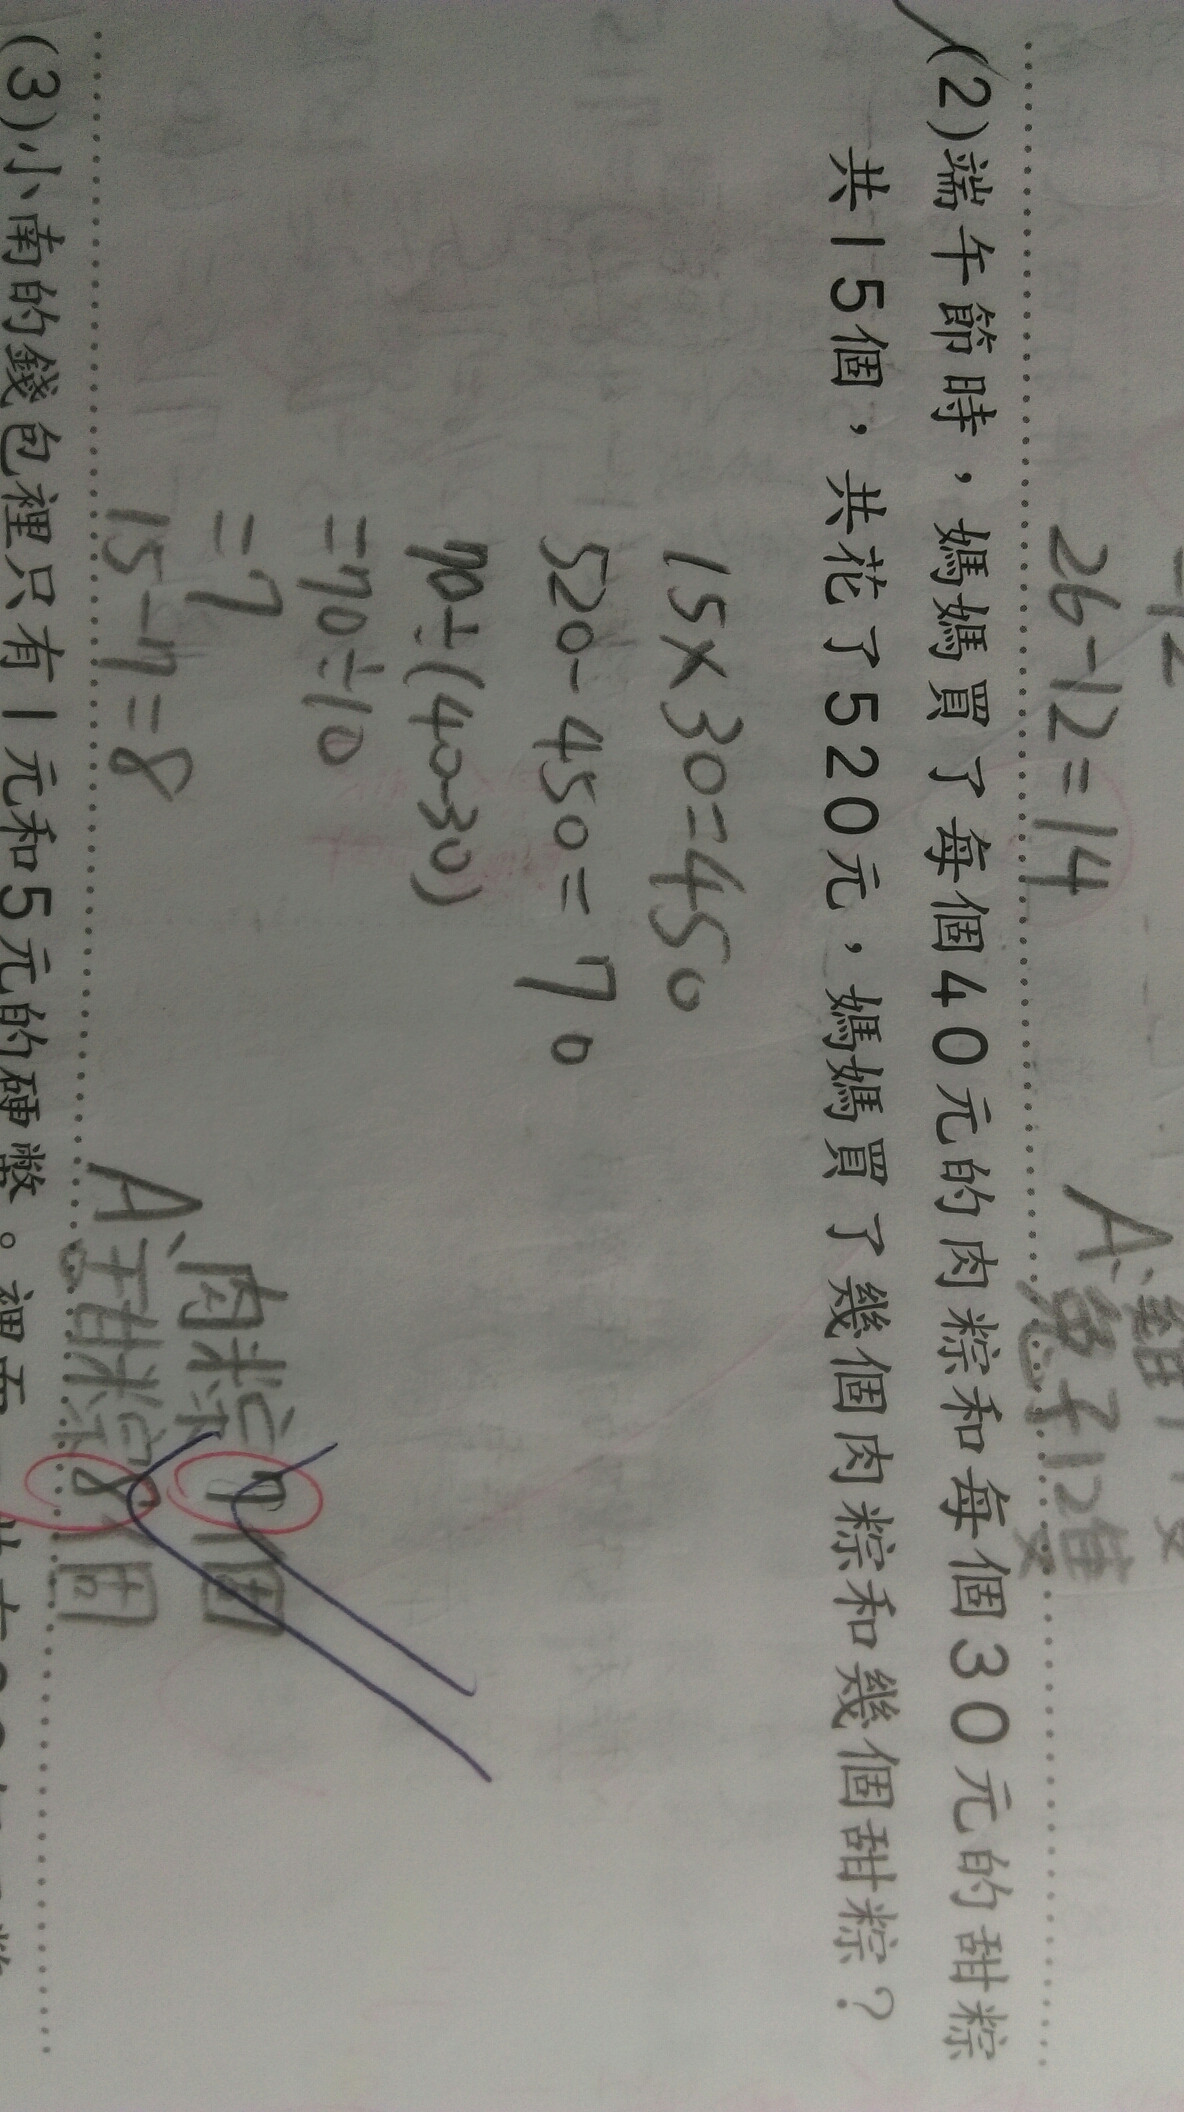 26-12=14
兔子12隻
(2)端午節時，媽媽買了每個40元的肉粽和每個30元的甜粽
共15個，共花了520元，媽媽買了幾個肉粽和幾個甜粽？
15×30=450
520-450=70
70÷(40-30)
=70÷10
=7
15-7=8
A:肉粽7個
甜粽8個
(3)小南的錢包裡只有1元和5元的硬幣。裡面